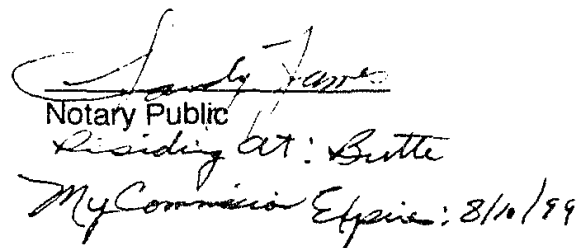 Sandy James
Notary Public
Residing at: Butte
My Commission Expires: 8/10/99